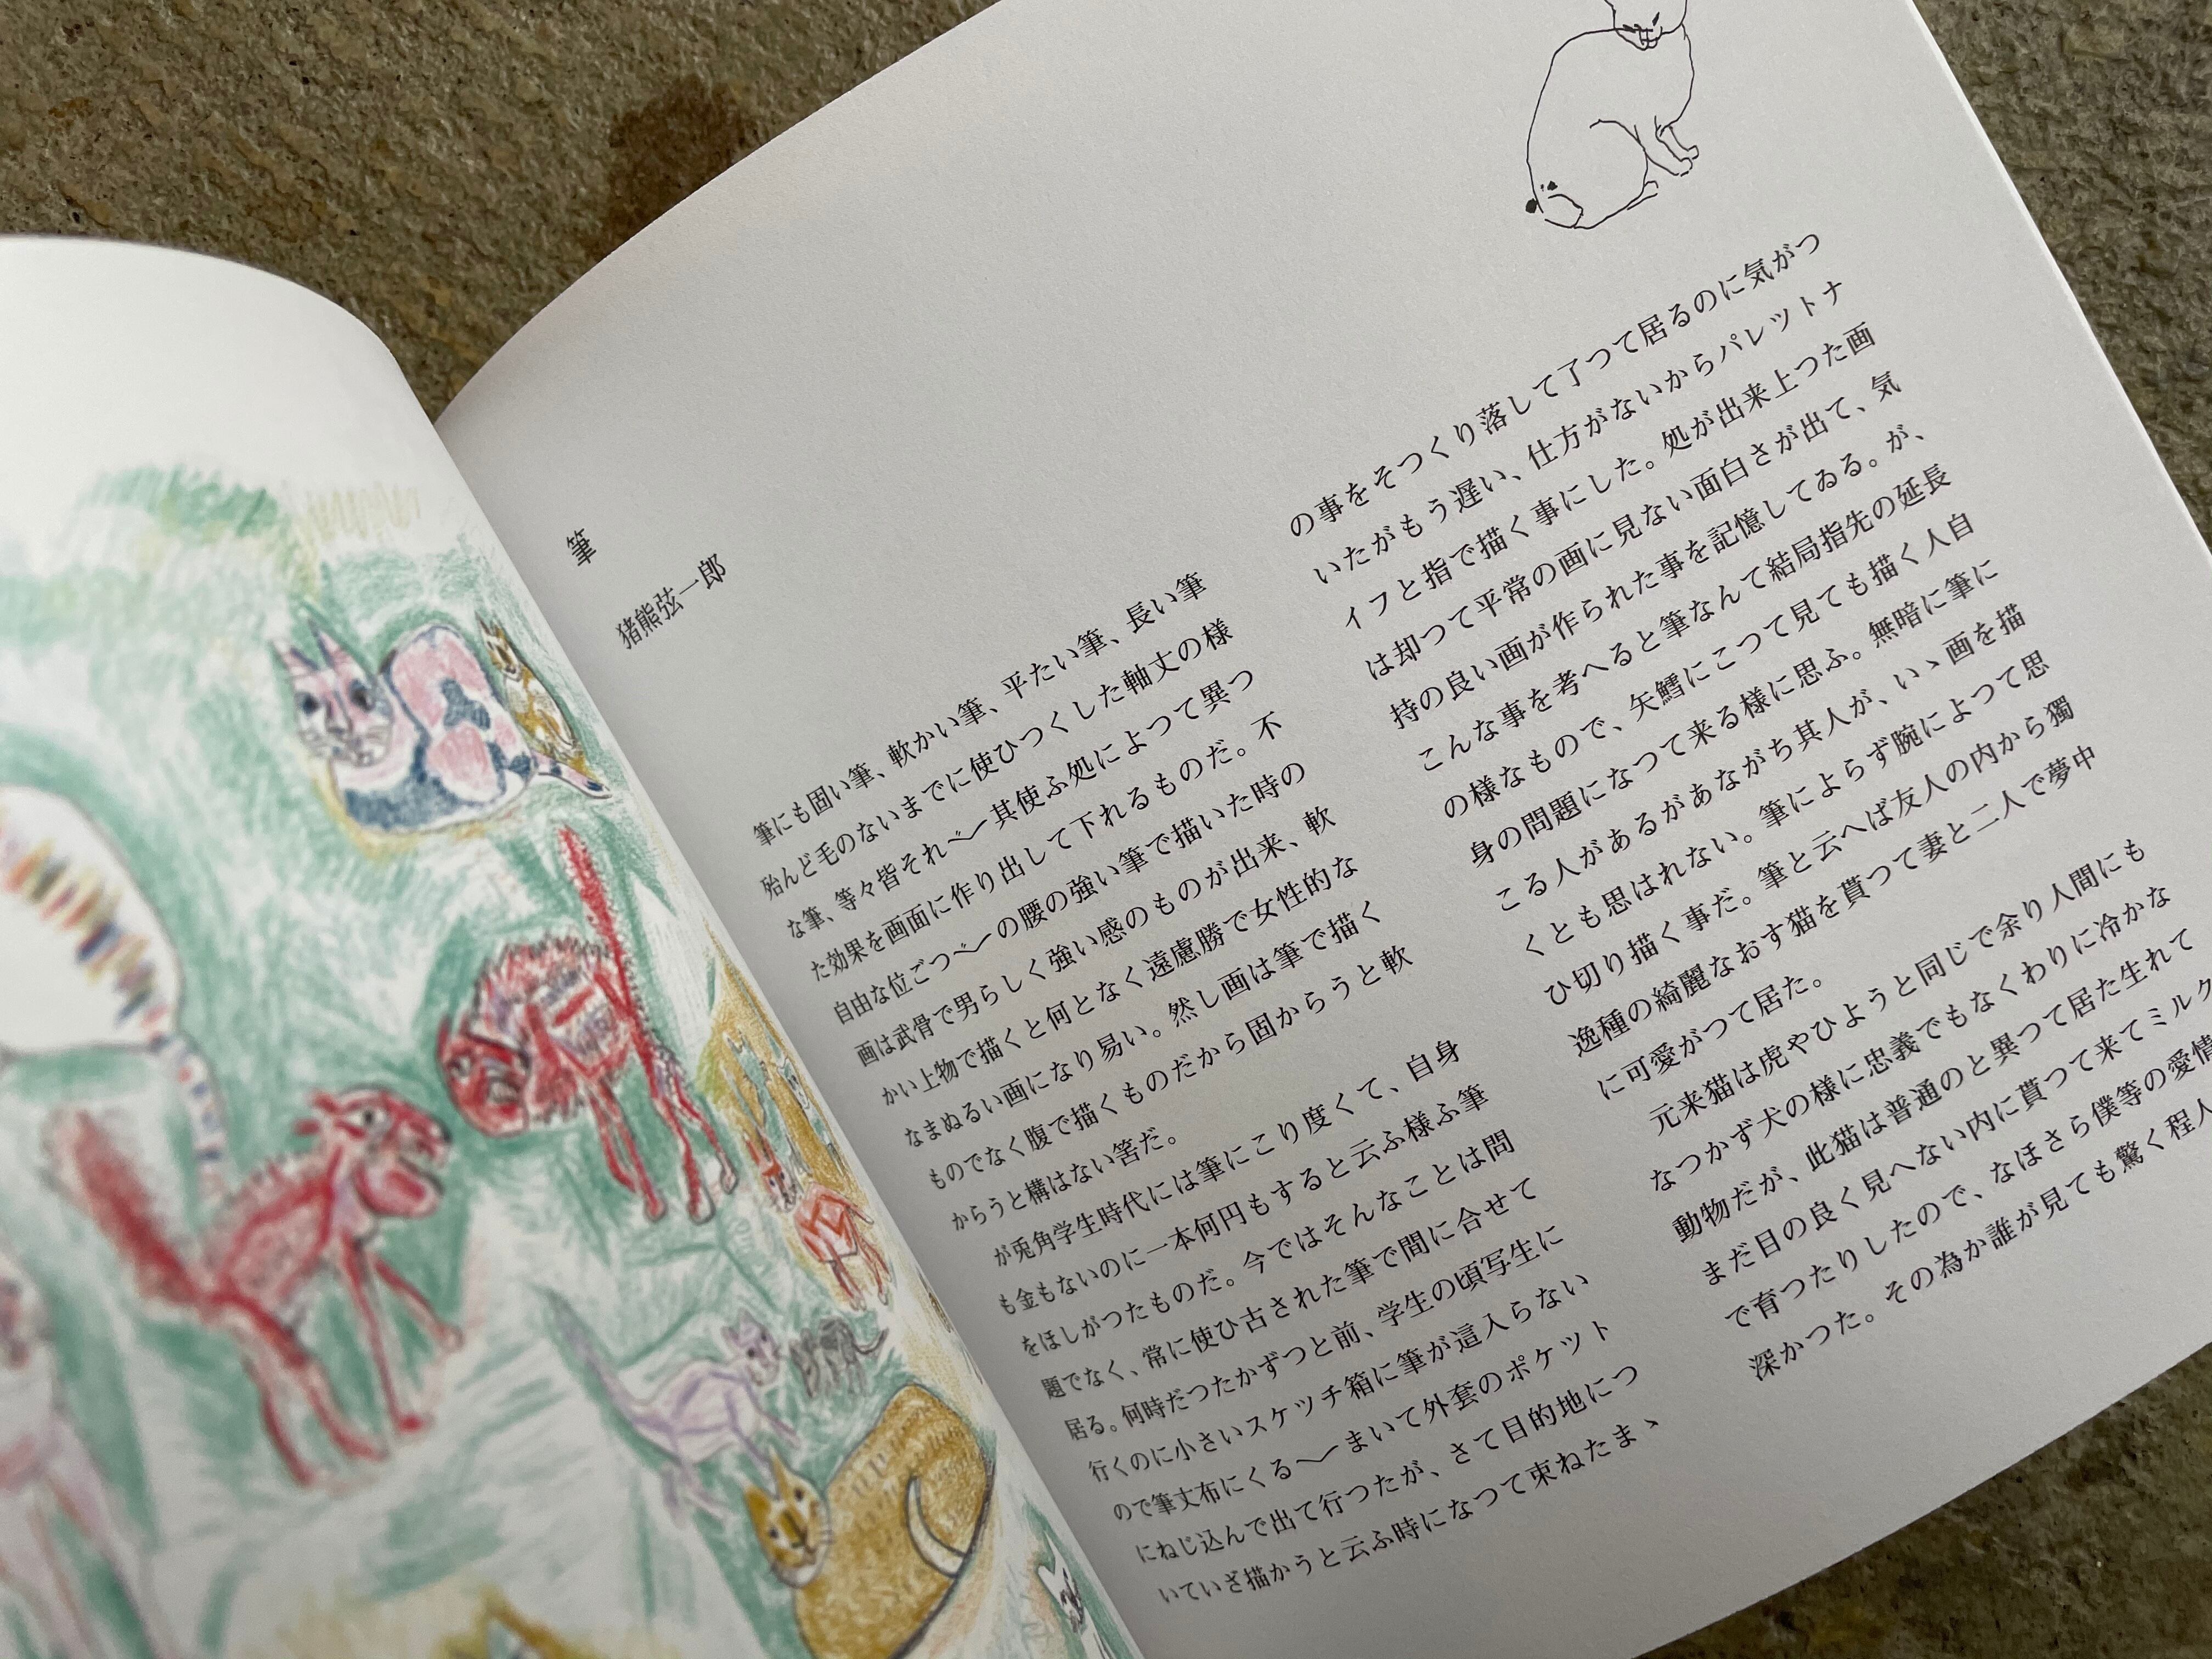 筆
猪熊弦一郎
筆にも固い筆、軟かい筆、平たい筆、長い筆
殆んど毛のないまでに使ひつくした軸丈の様
な筆、等々皆それ〲其使ふ処によつて異つ
た効果を画面に作り出して下れるものだ。不
自由な位ごつ〲の腰の強い筆で描いた時の
画は武骨で男らしく強い感のものが出来、軟
かい上物で描くと何となく遠慮勝で女性的な
なまぬるい画になり易い。然し画は筆で描く
ものでなく腹で描くものだから固からうと軟
からうと構はない筈だ。
が兎角学生時代には筆にこり度くて、自身
も金もないのに一本何円もすると云ふ様ふ筆
をほしがつたものだ。今ではそんなことは問
題でなく、常に使ひ古された筆で間に合せて
居る。何時だつたかずつと前、学生の頃写生に
行くのに小さいスケツチ箱に筆が這入らない
ので筆丈布にくる〱まいて外套のポケット
にねじ込んで出て行つたが、さて目的地につ
いていざ描かうと云ふ時になつて束ねたまゝ
の事をそつくり落して了つて居るのに気がつ
いたがもう遅い、仕方がないからパレツトナ
イフと指で描く事にした。処が出来上つた画
は却つて平常の画に見ない面白さが出て、気
持の良い画が作られた事を記憶してゐる。が、
こんな事を考へると筆なんて結局指先の延長
の様なもので、矢鱈にこつて見ても描く人自
身の問題になつて来る様に思ふ。無暗に筆に
こる人があるがあながち其人が、いゝ画を描
くとも思はれない。筆によらず腕によつて思
ひ切り描く事だ。筆と云へば友人の内から獨
逸種の綺麗なおす猫を貰つて妻と二人で夢中
に可愛がつて居た。
元来猫は虎やひようと同じで余り人間にも
なつかず犬の様に忠義でもなくわりに冷かな
動物だが、此猫は普通のと異つて居た生れて
まだ目の良く見へない内に貰つて来てミルク
で育つたりしたので、なほさら僕等の愛情
深かつた。その為か誰が見ても驚く程人